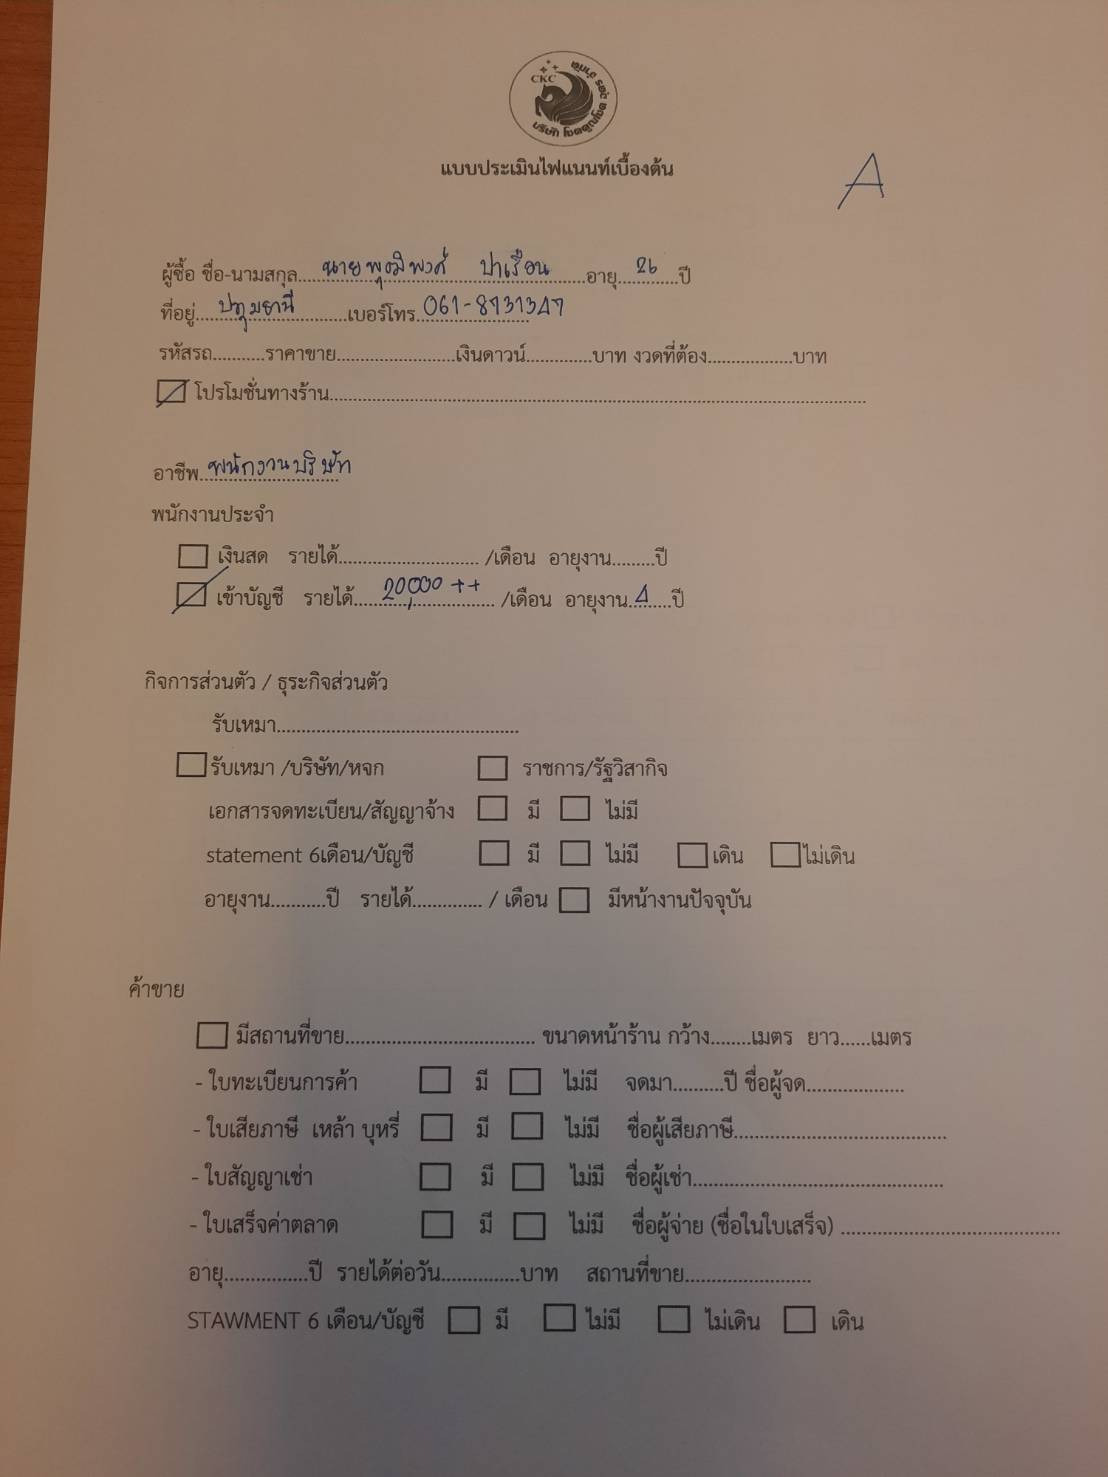 CKC
บริษัท โชคคูณโชค คาร์ จำกัด
แบบประเมินไฟแนนท์เบื้องต้น
A
ผู้ซื้อ ชื่อ-นามสกุล...นายพุฒิพงศ์ ปาเรือน...อายุ...26...ปี
ที่อยู่...ปทุมธานี...เบอร์โทร...061-8731347
รหัสรถ...........ราคาขาย.........................เงินดาวน์..............บาท งวดที่ต้อง..................บาท
โปรโมชั่นทางร้าน.........................
อาชีพ...พนักงานบริษัท
พนักงานประจำ
เงินสด รายได้............................../เดือน อายุงาน.........ปี
เข้าบัญชี รายได้...20,000 ++.../เดือน อายุงาน...4...ปี
กิจการส่วนตัว / ธุระกิจส่วนตัว
รับเหมา....................................................
รับเหมา /บริษัท/หจก ราชการ/รัฐวิสากิจ
เอกสารจดทะเบียน/สัญญาจ้าง มี ไม่มี
statement 6เดือน/บัญชี มี ไม่มี เดิน ไม่เดิน
อายุงาน...........ปี รายได้.............. / เดือน มีหน้างานปัจจุบัน
ค้าขาย
มีสถานที่ขาย....................................... ขนาดหน้าร้าน กว้าง........เมตร ยาว......เมตร
- ใบทะเบียนการค้า มี ไม่มี จดมา..........ปี ชื่อผู้จด....................
- ใบเสียภาษี เหล้า บุหรี่ มี ไม่มี ชื่อผู้เสียภาษี...........................................
- ใบสัญญาเช่า มี ไม่มี ชื่อผู้เช่า...................................................
- ใบเสร็จค่าตลาด มี ไม่มี ชื่อผู้จ่าย (ชื่อในใบเสร็จ) ............................................
อายุ.................ปี รายได้ต่อวัน................บาท สถานที่ขาย..........................
STAWMENT 6 เดือน/บัญชี มี ไม่มี ไม่เดิน เดิน